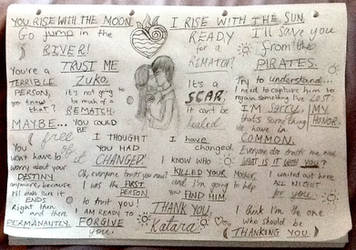 YOU RISE WITH THE MOON. I RISE WITH THE SUN.
Go jump in the
RIVER!
READY
for a
REMATCH?
I'll save you
from the
PIRATES.
You're a
TERRIBLE
PERSON,
you know
that?
TRUST ME
Zuko,
it's not going
to be much of a
REMATCH.
It's a
SCAR.
It can't be
healed
Try to understand...
I need to capture him to
I'M SORRY.
that's something
we have in
COMMON.
MY
HONOR
MAYBE... YOU COULD
BE
free
I THOUGHT
YOU HAD
CHANGED!
I have
changed.
You
won't have to
worry about your
DESTINY
anymore, because
I'll make sure it
ENDS
Right then
and there
PERMANANTLY.
I know who
KILLED YOUR Mother,
and I'm going
to help you
FIND HIM
I was the
FIRST
PERSON
to trust you!
I waited out here
ALL NIGHT
for you
I AM READY TO
FORGIVE
you
THANK YOU,
Katara
I think I'm the one
who should be
THANKING YOU.